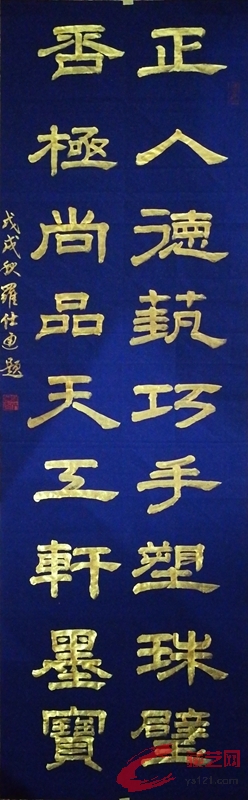 正人德蓺巧手塑珠璧
香極尚品天工軒墨寶
戊戌秋羅仕題
艺网
ys121.com